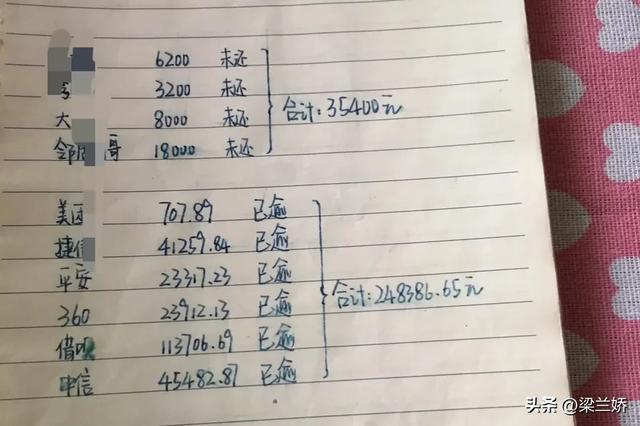 6200 未还
3200 未还
大 8000 未还
邻 哥 18000 未还
合计:35400元
美团 707.89 已逾
捷信 41259.84 已逾
平安 23317.23 已逾
360 23912.13 已逾
借呗 113706.69 已逾
中信 45482.87 已逾
合计:248386.65元
头条 @梁兰娇